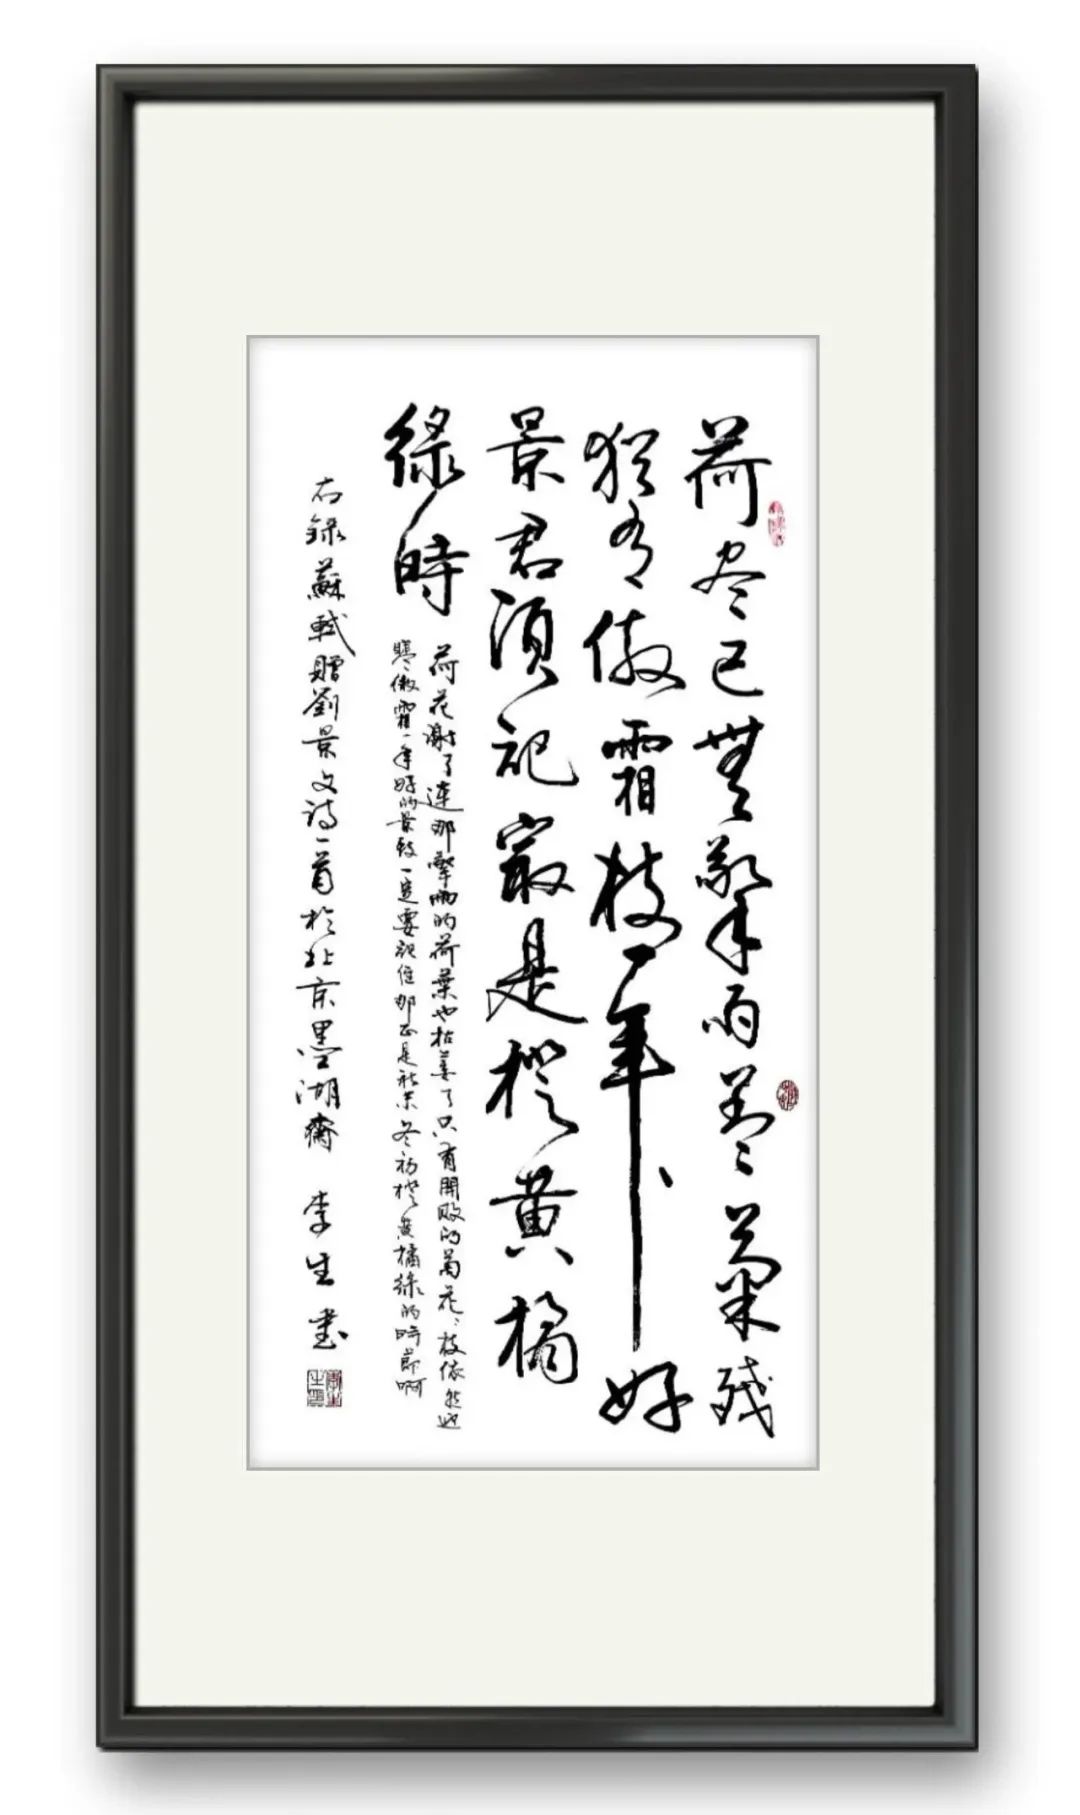 荷尽已無擎雨盖菊残
猶有傲霜枝一年好
景君須记最是橙黄橘
綠時
荷花謝了連那擎雨的荷葉也枯萎了只有開敗的菊花、枝依然迎
寒傲霜一年好的景致一定要记住那正是秋末冬初橙黄橘綠的時節啊
右錄蘇軾贈劉景文诗一首於北京墨湖齋 李生書